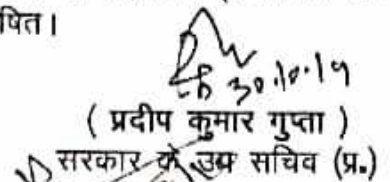 षित।
30.10.19
( प्रदीप कुमार गुप्ता )
सरकार के उप सचिव (प्र.)